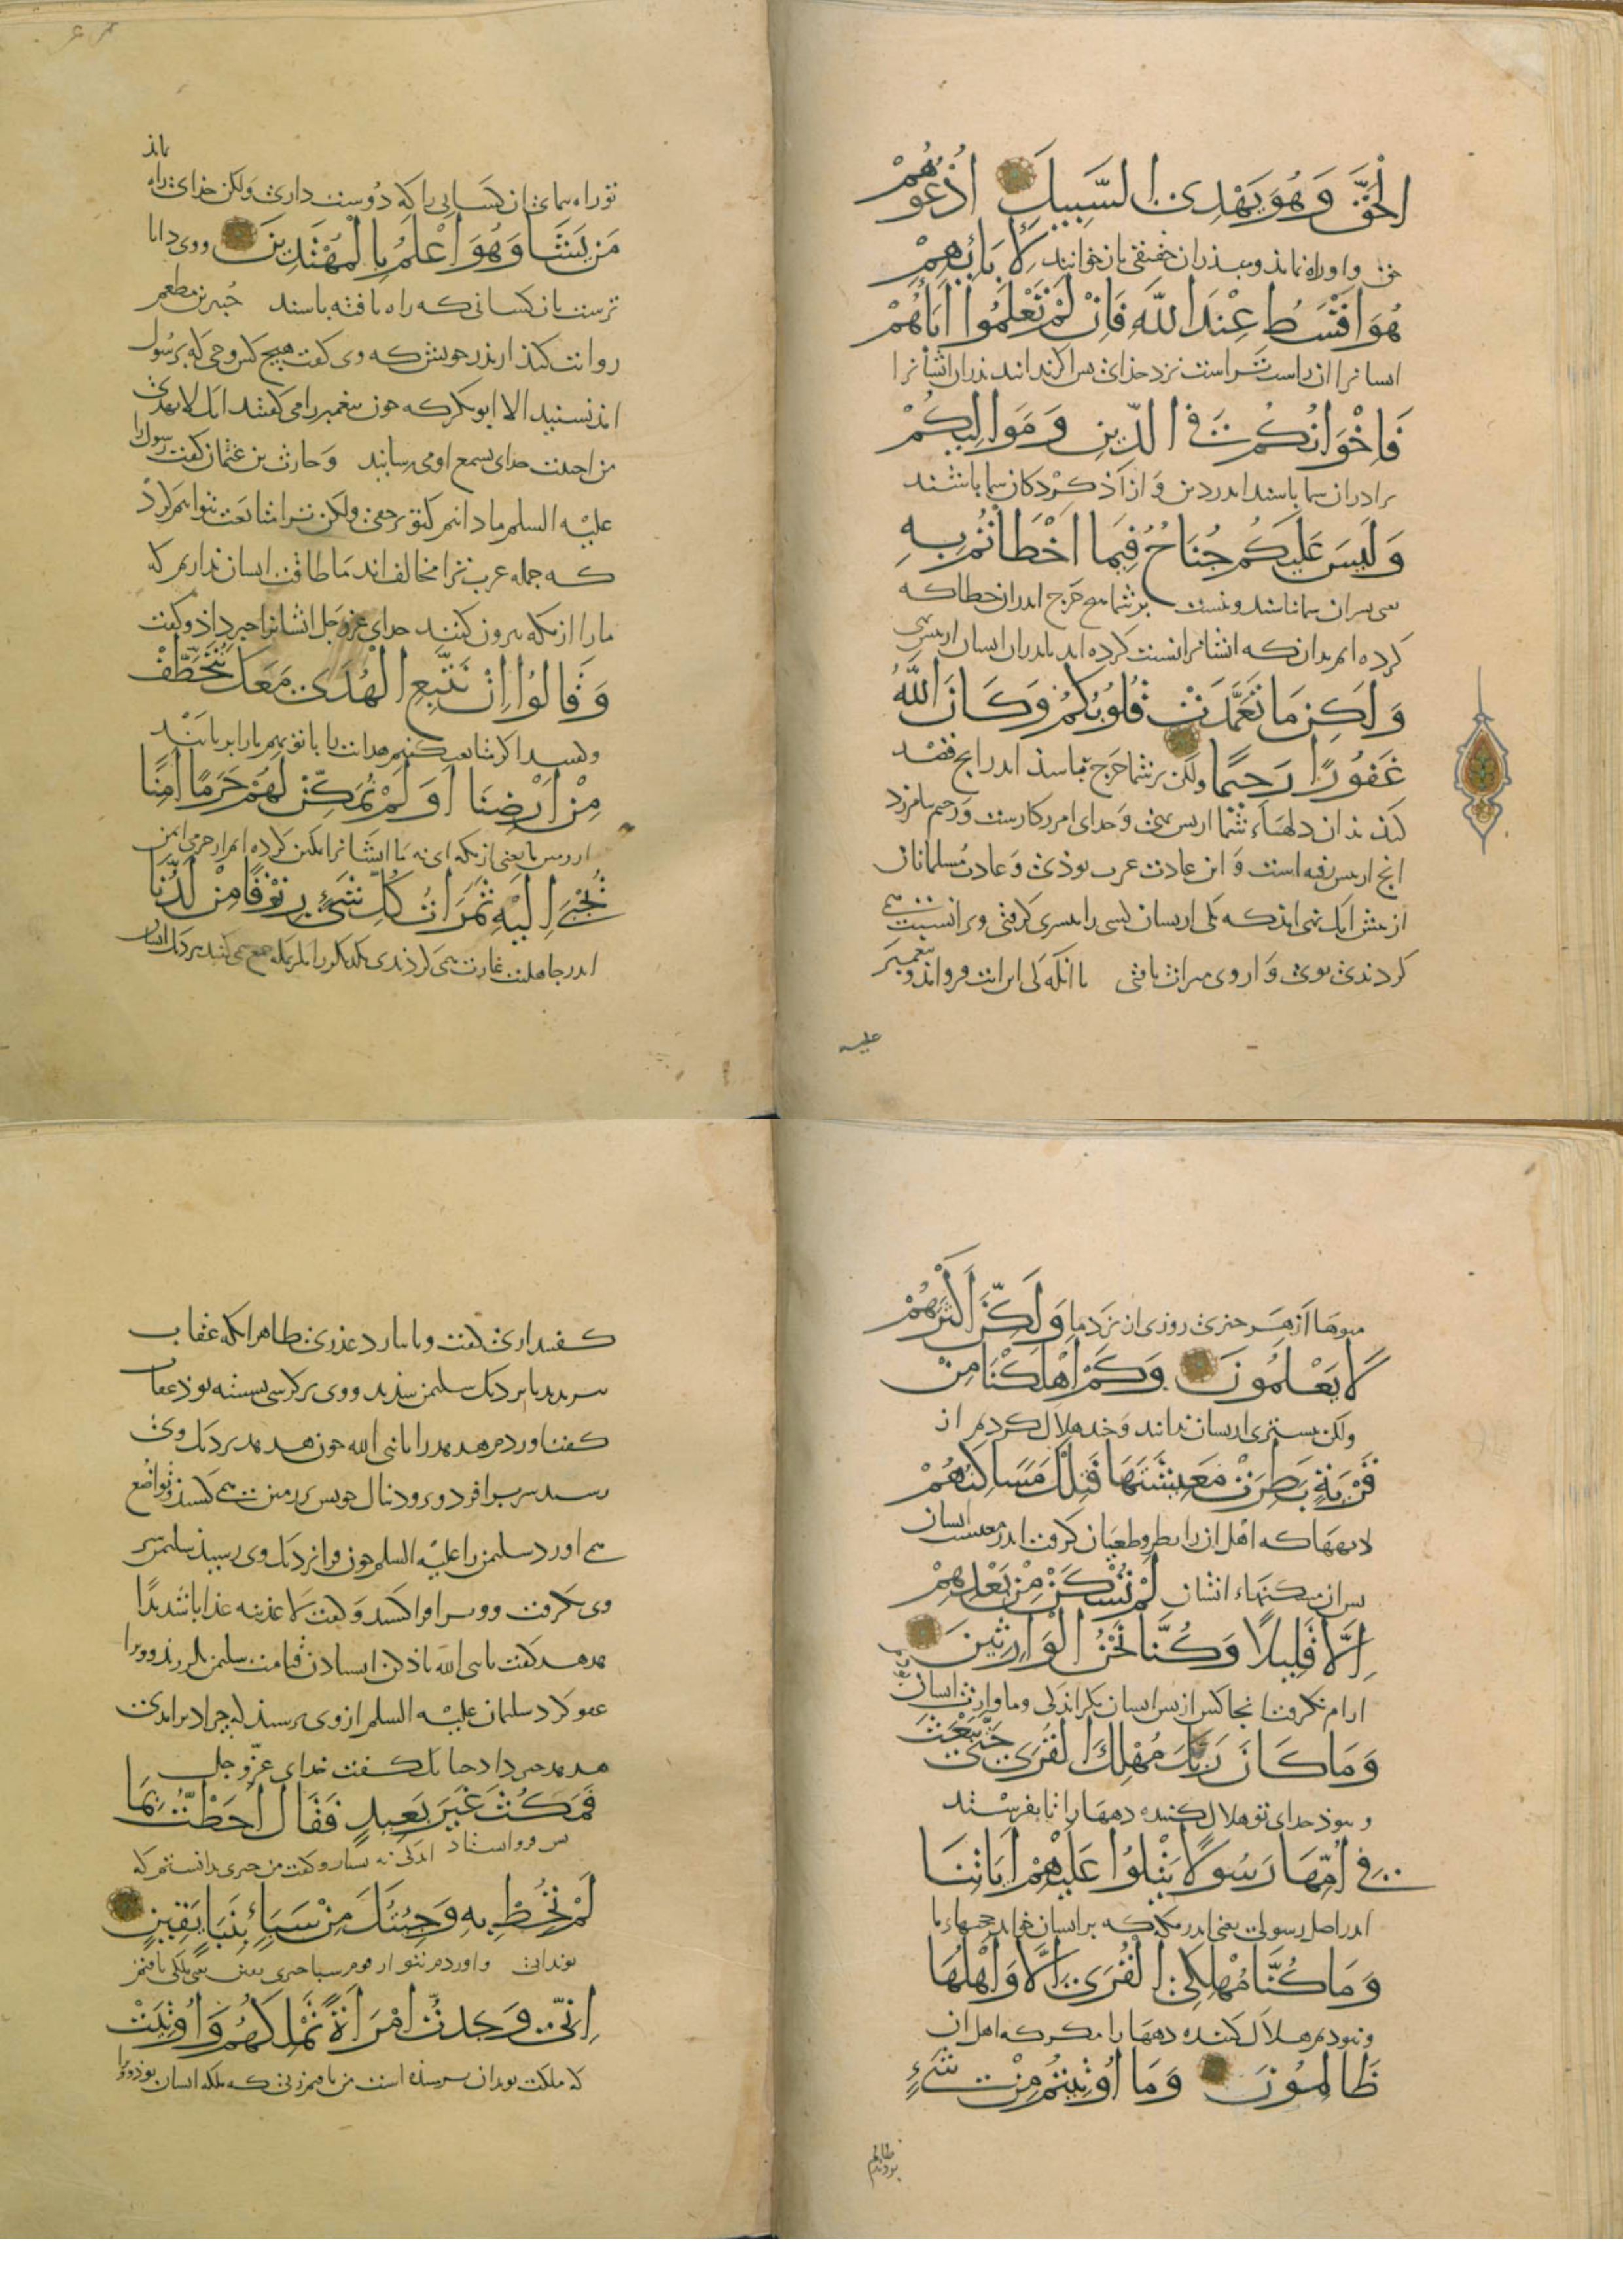 الْحَقَّ وَهُوَ يَهْدِى السَّبِيلَ اُدْعُوهُمْ
حق واوراه نماذ وبپذران حقیقی بازخوانید لِآبَائِهِمْ
هُوَ اَقْسَطُ عِنْدَ اللّٰهِ فَاِنْ لَمْ تَعْلَمُوا اٰبَاءَهُمْ
ایشانرا ان راست تراست نزد خدای بس اگر ندانند پذران ایشانرا
فَاِخْوَانُكُمْ فِى الدِّينِ وَمَوَالِيكُمْ
برادران شما باشند اندر دین و ازاذ کردکان شما باشند
وَلَيْسَ عَلَيْكُمْ جُنَاحٌ فِيمَا اَخْطَاْتُمْ بِهِ
بسران شما نباشند ونیست برشما هیچ حرج اندران خطا که
کرده اید بدان که ایشانرا نسبت کرده اید بپذران ایشان ازپس نهی
وَلَكِنْ مَا تَعَمَّدَتْ قُلُوبُكُمْ وَكَانَ اللّٰهُ
غَفُورًا رَحِيمًا ولکن برشما حرج باشذ اندرانچ قصد
کند بدان دلهاء شما ازپس نهی وخدای امرزکارست ورحیم بیامرزد
انچ ازپس رفته است و این عادت عرب بوذی وعادت مسلمانان
از پیش انک نهی امذ که یکی ازیشان کسی را بپسری کرفتی ویرا نسبت
کردندی بوی و از وی میراث یافتی تا انکه که این ایت فرو امذ و پیغمبر
علیه
توراه ننمائی ان کسانی را که دوست داری ولکن خدای راه
نماذ
مَنْ يَشَاءُ وَهُوَ اَعْلَمُ بِالْمُهْتَدِينَ ووی دانا
ترست بان کسانی که راه یافته باشند جُبیر بن مطعم
روایت کنذ از پذر خویش که وی کفت هیچ کس وحی که برسول
امذ نشنید الا ابو بکر که چون پیغمبر را می کفتند انک لا تهدی
من احببت خدای بسمع او می رسانید وحارث بن عثمان کفت رسول را
علیه السلم ما دانیم که تو برحقی ولکن ترا متابعت نتوانیم کرد
که جمله عرب ترا مخالف اند ما طاقت ایشان نداریم که
مارا ازمکه بیرون کنند خدای عزوجل ایشانرا خبر داذ وکفت
وَقَالُوا اِنْ نَتَّبِعِ الْهُدَى مَعَكَ نُتَخَطَّفْ
اکر متابعت کنیم هدایت را با تو بهم مارا بربایند
مِنْ اَرْضِنَا اَوَلَمْ نُمَكِّنْ لَهُمْ حَرَمًا اٰمِنًا
اززمین ما یعنی ازمکه ای نه ما ایشانرا تمکین کرده ایم از حرمی ایمن
يُجْبَى اِلَيْهِ ثَمَرَاتُ كُلِّ شَيْءٍ رِزْقًا مِنْ لَدُنَّا
اندر جاهلیت غارت می کردندی یکدیکر را بمکه جمع می کنند نزدیک ایشان
میوها از هر چیزی روزی از نزد ما وَلَكِنَّ اَكْثَرَهُمْ
لَا يَعْلَمُونَ وَكَمْ اَهْلَكْنَا مِنْ
ولکن بیشتری ازیشان ندانند وچند هلاک کردیم از
قَرْيَةٍ بَطِرَتْ مَعِيشَتَهَا فَتِلْكَ مَسَاكِنُهُمْ
دیهها که اهل ان را بطر وطغیان کرفت اندر معیشت ایشان
بس ان مسکنهاء ایشان لَمْ تُسْكَنْ مِنْ بَعْدِهِمْ
اِلَّا قَلِيلًا وَكُنَّا نَحْنُ الْوَارِثِينَ
ارام نکرفت انجا کس ازپس ایشان مکر اندکی وما وارث ایشان
وَمَا كَانَ رَبُّكَ مُهْلِكَ الْقُرَى حَتَّى يَبْعَثَ
ونبوذ خدای تو هلاک کننده دیهها را تا بفرستد
فِى اُمِّهَا رَسُولًا يَتْلُوا عَلَيْهِمْ اٰيَاتِنَا
اندر اصل رسولی یعنی اندر مکه که برایشان خواند حجتهاء ما
وَمَا كُنَّا مُهْلِكِى الْقُرَى اِلَّا وَاَهْلُهَا
ونبودیم هلاک کننده دیهها را مکر که اهل ان
ظَالِمُونَ وَمَا اُوتِيتُمْ مِنْ شَيْءٍ
ظالم بودند
کفتند اری کفت ویا بیارد عذری ظاهر انکه عقاب
هدهد را بنزدیک سلیمن بدید ووی برکرسی نشسته بوذ عقاب
کفت اوردم هدهد را یا نبی الله چون هدهد بنزدیک وی
رسید سر برافرد و پرو دنبال خویش بر زمین می کشید وتواضع
می اورد سلیمن را علیه السلم چون فرا نزدیک وی رسید سلیمن سر
وی بکرفت و فراکشید وکفت لا عذبنه عذابا شدیدا
هدهد کفت یا نبی الله یاذ کن ایستادن قیامت سلیمن بلرزید وویرا
عفو کرد سلیمان علیه السلم ازوی پرسید که چرا دیر امدی
هدهد جواب داد چنانک کفت خدای عزّ وجل
فَمَكَثَ غَيْرَ بَعِيدٍ فَقَالَ اَحَطْتُ بِمَا
بس فروایستاد اندکی نه بسیار وکفت من چیزی بدانستم که
لَمْ تُحِطْ بِهِ وَجِئْتُكَ مِنْ سَبَاٍ بِنَبَاٍ يَقِينٍ
تو ندانی واوردم بتو از قوم سبا خبری یقین یعنی ملکی یافتم
اِنِّى وَجَدْتُ امْرَاَةً تَمْلِكُهُمْ وَاُوتِيَتْ
که ملکت تو بدان نرسیذه است من یافتم زنی که ملکه ایشان بوذ وویرا